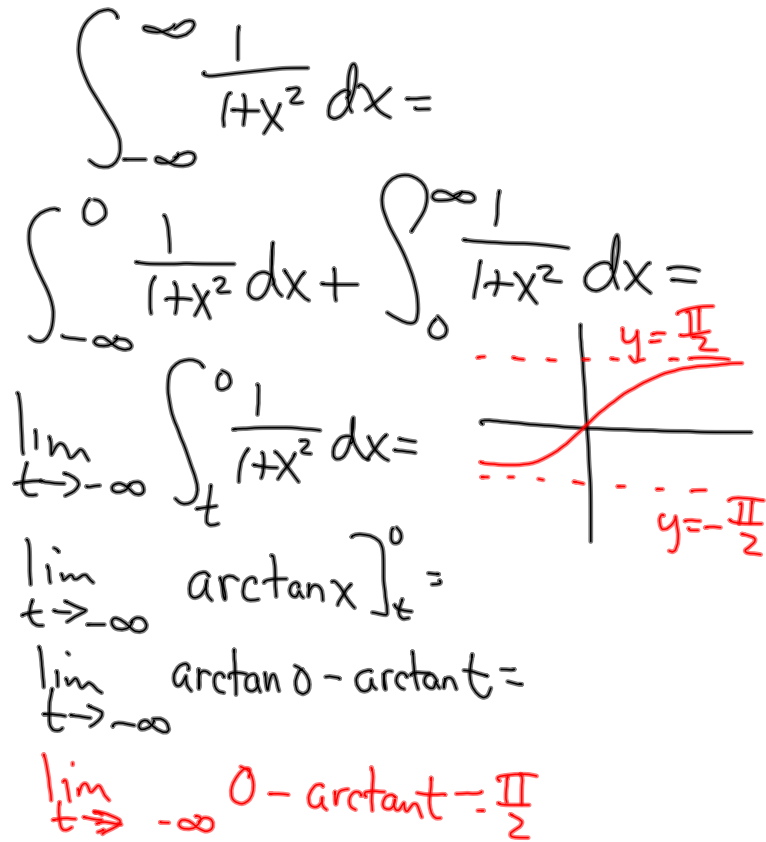 ∫_{-∞}^{∞} 1/(1+x²) dx =
∫_{-∞}^{0} 1/(1+x²) dx + ∫_{0}^{∞} 1/(1+x²) dx =
y = π/2
lim_{t→-∞} ∫_{t}^{0} 1/(1+x²) dx =
y = -π/2
lim_{t→-∞} arctan x ]_{t}^{0} =
lim_{t→-∞} arctan 0 - arctan t =
lim_{t→-∞} 0 - arctan t = π/2